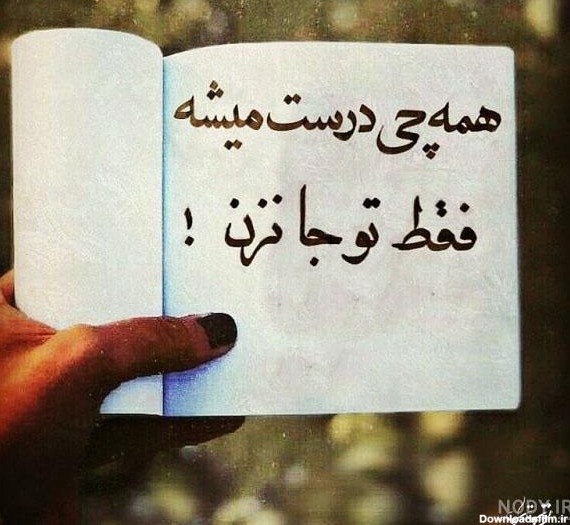 همه چی درست میشه
فقط تو جا نزن !
NODY.IR
Downloadafilm.ir